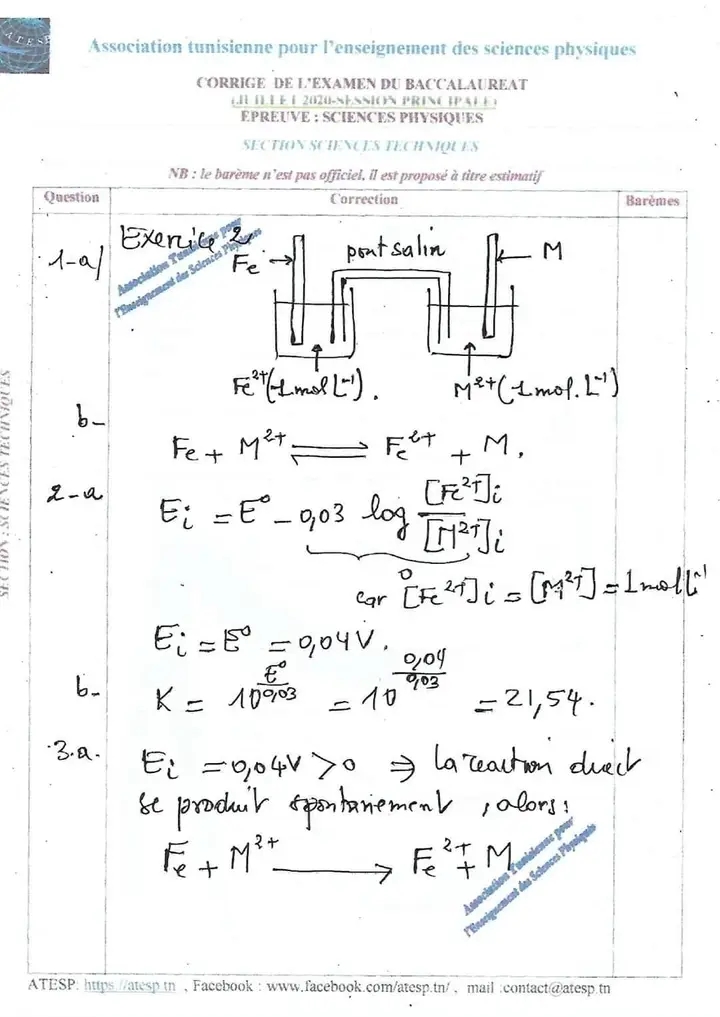 ATESP
Association tunisienne pour l'enseignement des sciences physiques
CORRIGE DE L'EXAMEN DU BACCALAUREAT
(JUILLET 2020-SESSION PRINCIPALE)
EPREUVE : SCIENCES PHYSIQUES
SECTION SCIENCES TECHNIQUES
NB : le barème n'est pas officiel. il est proposé à titre estimatif
Question Correction Barèmes
Exercice 2
Association Tunisienne pour
l'Enseignement des Sciences Physiques
1-a/ Fe pont salin M
Fe²⁺(1 mol L⁻¹). M²⁺(1 mol. L⁻¹)
b-
Fe + M²⁺ ⇌ Fe²⁺ + M.
2-a Ei = E° - 0,03 log [Fe²⁺]i / [M²⁺]i
0
car [Fe²⁺]i = [M²⁺] = 1 mol L⁻¹
Ei = E° = 0,04V.
b- K = 10^(E°/0,03) = 10^(0,04/0,03) = 21,54.
3.a. Ei = 0,04V > 0 ⇒ la reaction direct
se produit spontaniement , alors :
Fe + M²⁺ → Fe²⁺ + M
Association Tunisienne pour
l'Enseignement des Sciences Physiques
SECTION : SCIENCES TECHNIQUES
ATESP: https://atesp.tn , Facebook : www.facebook.com/atesp.tn/ , mail :contact@atesp.tn